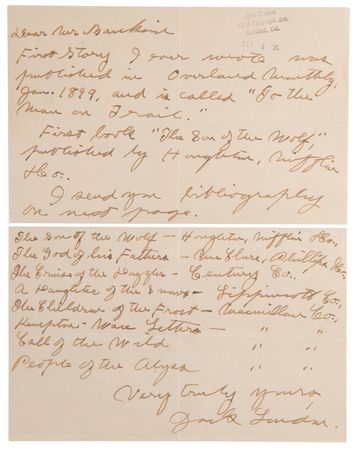 Jack London
Telegraph Ave.
Oakland, Cal.
Dear Mr.
First Story I ever wrote was
published in Overland Monthly,
Jan. 1899, and is called "To the
Man on Trail."
First book "The Son of the Wolf,"
published by Houghton, Mifflin
& Co.
I send you bibliography
on next page.
The Son of the Wolf — Houghton, Mifflin & Co.,
The God of his Fathers — McClure, Phillips & Co.,
The Cruise of the Dazzler — Century Co.
A Daughter of the Snows — Lippincott Co.,
The Children of the Frost — Macmillan Co.,
Kempton-Wace Letters — " "
Call of the Wild " "
People of the Abyss " "
Very truly yours,
Jack London.